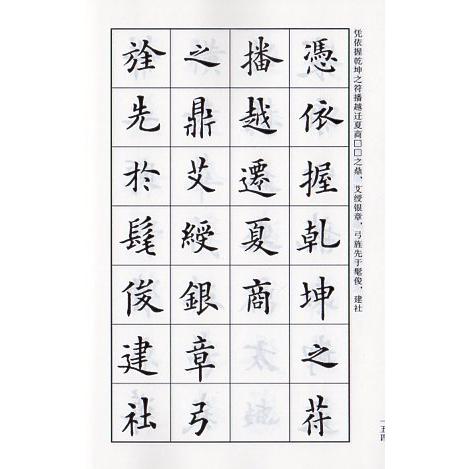 凭依握乾坤之符播越迁夏商□□之鼎，艾绶银章，弓旌先于髦俊，建社
憑依握乾坤之苻
播越遷夏商
之鼎艾綬銀章弓
旌先於髦俊建社
一五四